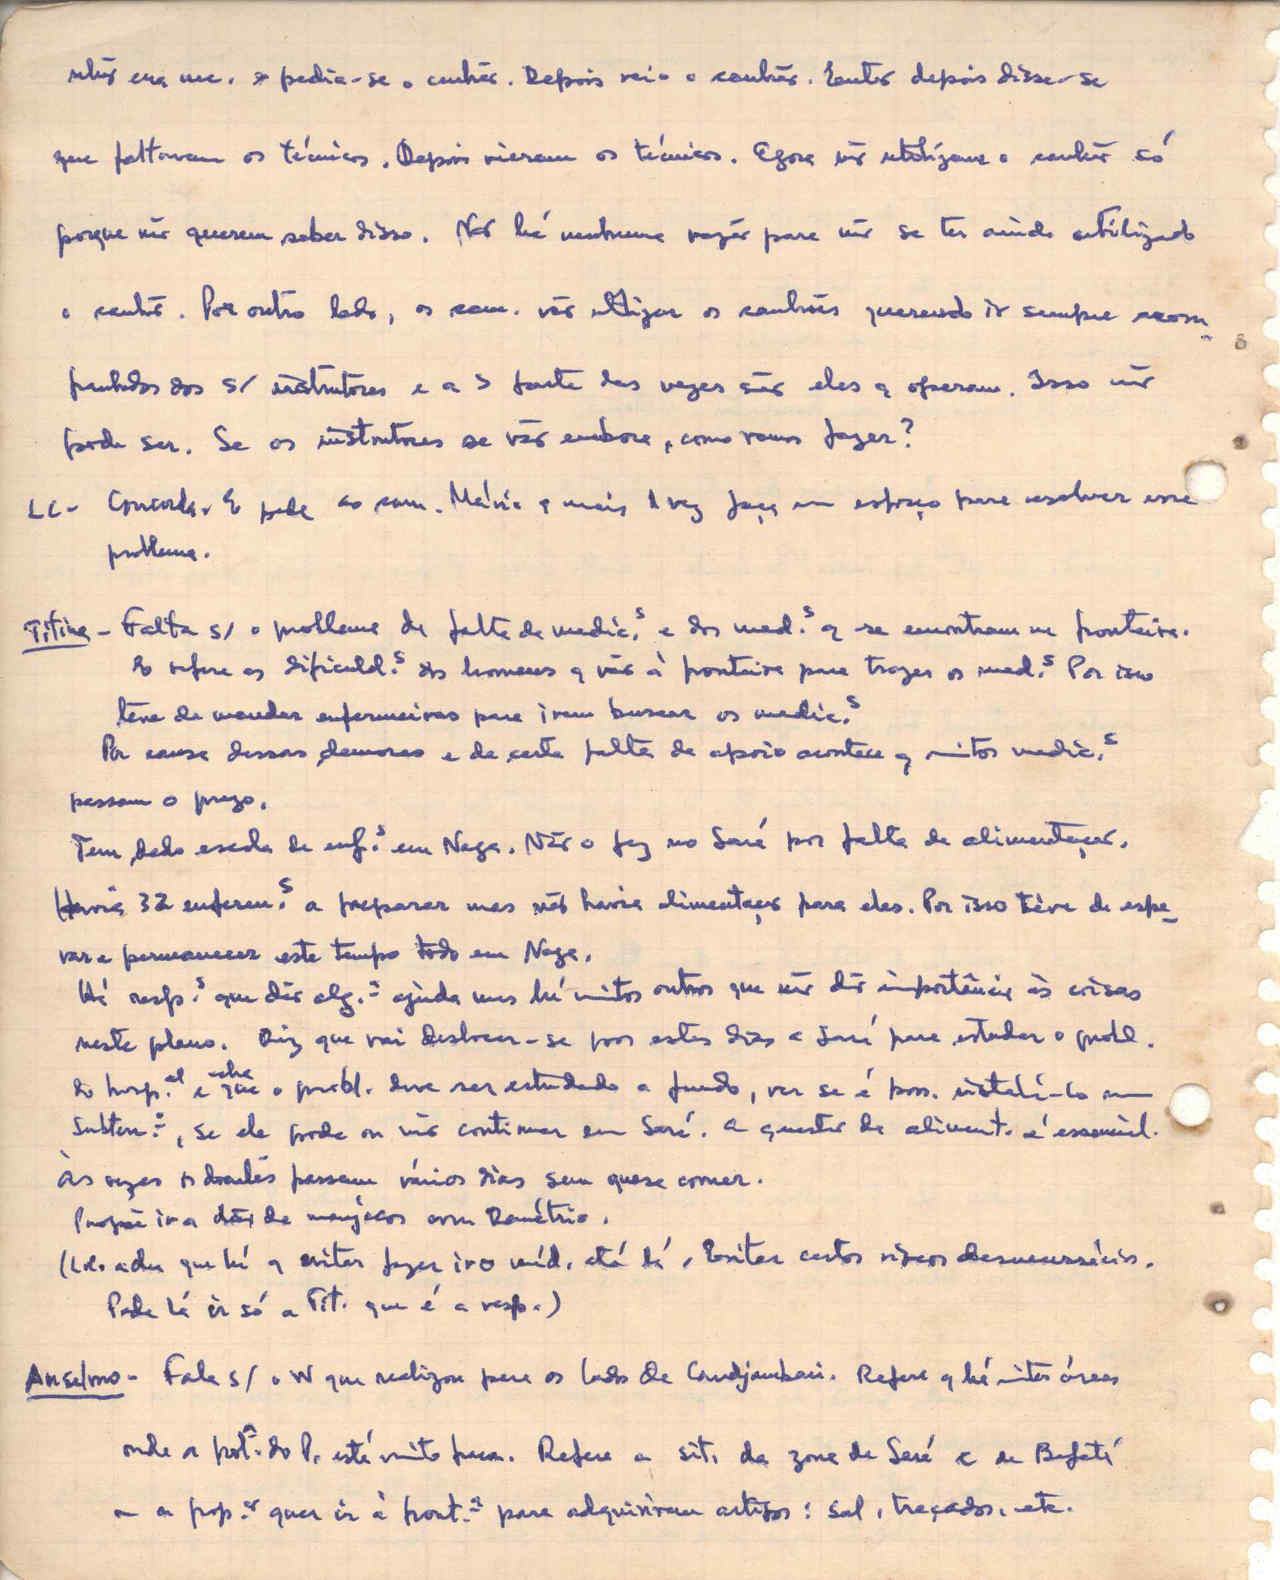 pedia-se o canhão. Depois veio o canhão. Então depois disse-se
que faltavam os técnicos. Depois vieram os técnicos. Agora não utilizam o canhão só
porque não querem saber disso. Não há nenhuma razão para não se ter ainda utilizado
o canhão. Por outro lado, os cam. vão utilizar os canhões querendo ir sempre acom-
panhados dos s/ instrutores e a > parte das vezes são eles q operam. Isso não
pode ser. Se os instrutores se vão embora, como vamos fazer?
LC - Concorda. E pede ao cam. Mário q mais 1 vez faça um esforço para resolver esse
problema.
Titina - Falta s/ o problema da falta de medic.s e dos med.s q se encontram na fronteira.
E refere as dificuld.s dos homens q vão à fronteira para trazer os med.s Por isso
teve de mandar enfermeiras para irem buscar os medic.s
Por causa dessas demoras e de certa falta de apoio acontece q mitos medic.s
passam o prazo.
Tem dado escola de enf.s em Naga. Não o fez no Sará por falta de alimentação.
Havia 32 enferm.s a preparar mas não havia alimentação para eles. Por isso teve de espe-
rar e permanecer este tempo todo em Naga.
Há resp.s que dão alg.a ajuda mas há mitos outros que não dão importância às coisas
neste plano. Diz que vai deslocar-se por estes dias a Sará para estudar o probl.
do hosp.al e acha que o probl. deve ser estudado a fundo, ver se é poss. instalá-lo num
subterr.o, se ele pode ou não continuar em Sará. A questão da aliment. é essencial.
Às vezes os doentes passam vários dias sem quase comer.
Propõe ir a chão de manjacos com Demétrio.
(L.C. acha que há q evitar fazer ir o méd. até lá. Evitar certos riscos desnecessários.
Pode lá ir só a Tit. que é a resp.)
Anselmo - Fala s/ o W que realizou para os lados de Candjambari. Refere q há mitas áreas
onde a pol.a do P. está mito fraca. Refere a sit. da zona de Sará e de Bafatá
a pop.ão quer ir à front.a para adquirirem artigos: sal, traçados, etc.